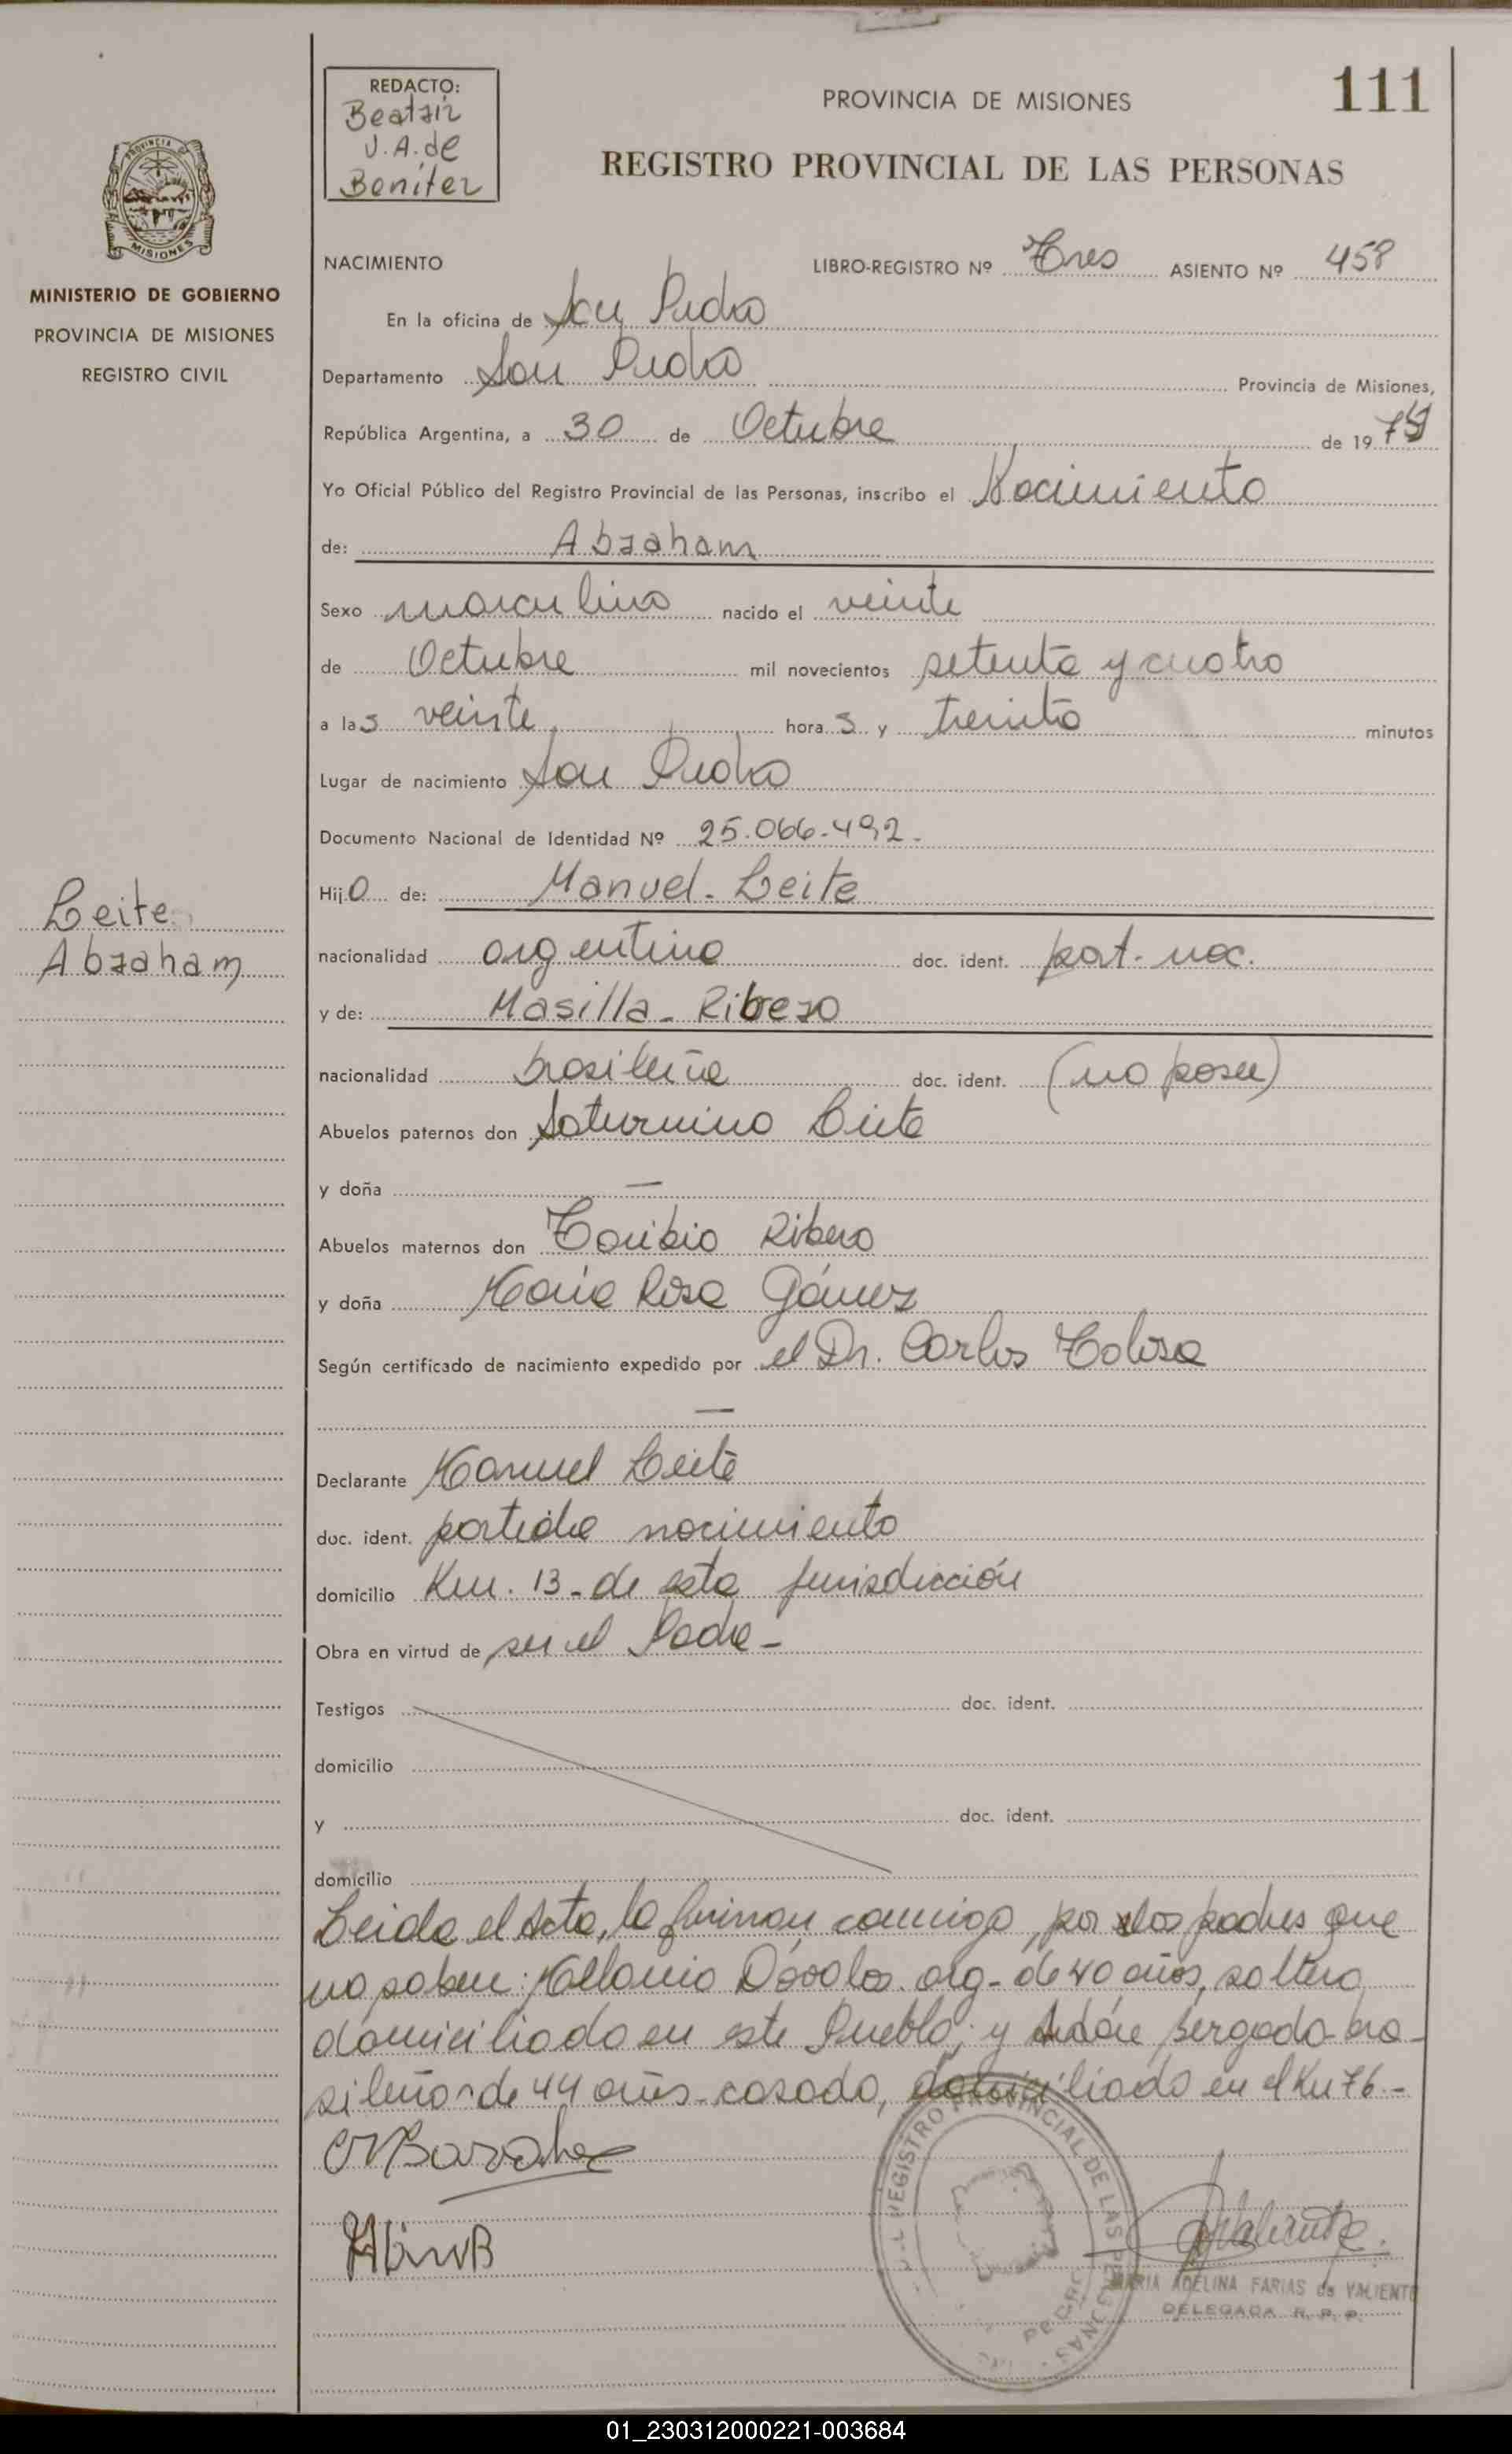 REDACTO:
Beatriz
V.A. de
Benítez
PROVINCIA DE MISIONES
111
REGISTRO PROVINCIAL DE LAS PERSONAS
PROVINCIA DE
MISIONES
MINISTERIO DE GOBIERNO
PROVINCIA DE MISIONES
REGISTRO CIVIL
NACIMIENTO LIBRO-REGISTRO Nº Tres ASIENTO Nº 458
En la oficina de San Pedro
Departamento San Pedro Provincia de Misiones,
República Argentina, a 30 de Octubre de 1974
Yo Oficial Público del Registro Provincial de las Personas, inscribo el Nacimiento
de: Abraham
Sexo masculino nacido el veinte
de Octubre mil novecientos setenta y cuatro
a las veinte horas y treinta minutos
Lugar de nacimiento San Pedro
Documento Nacional de Identidad Nº 25.066.492.
Hijo de: Manuel - Leite
Leite
Abraham
nacionalidad argentino doc. ident. part. nac.
y de: Masilla - Ribero
nacionalidad brasileña doc. ident. (no posee)
Abuelos paternos don Saturnino Leite
y doña —
Abuelos maternos don Toribio Ribero
y doña María Rosa Gómez
Según certificado de nacimiento expedido por el Dr. Carlos Tolosa
—
Declarante Manuel Leite
doc. ident. partida nacimiento
domicilio Km. 13 - de esta jurisdicción
Obra en virtud de ser el Padre -
Testigos doc. ident.
domicilio
y doc. ident.
domicilio
Leida el Acta, la firman conmigo, por los padres que
no saben: Dávalos. arg - de 40 años, soltero
domiciliado en este Pueblo; y bra-
sileño - de 44 años - casado, domiciliado en el Km 76 -
REGISTRO PROVINCIAL DE LAS PERSONAS
MARIA ADELINA FARIAS de VALIENTE
DELEGADA R. P. P.
01_230312000221-003684